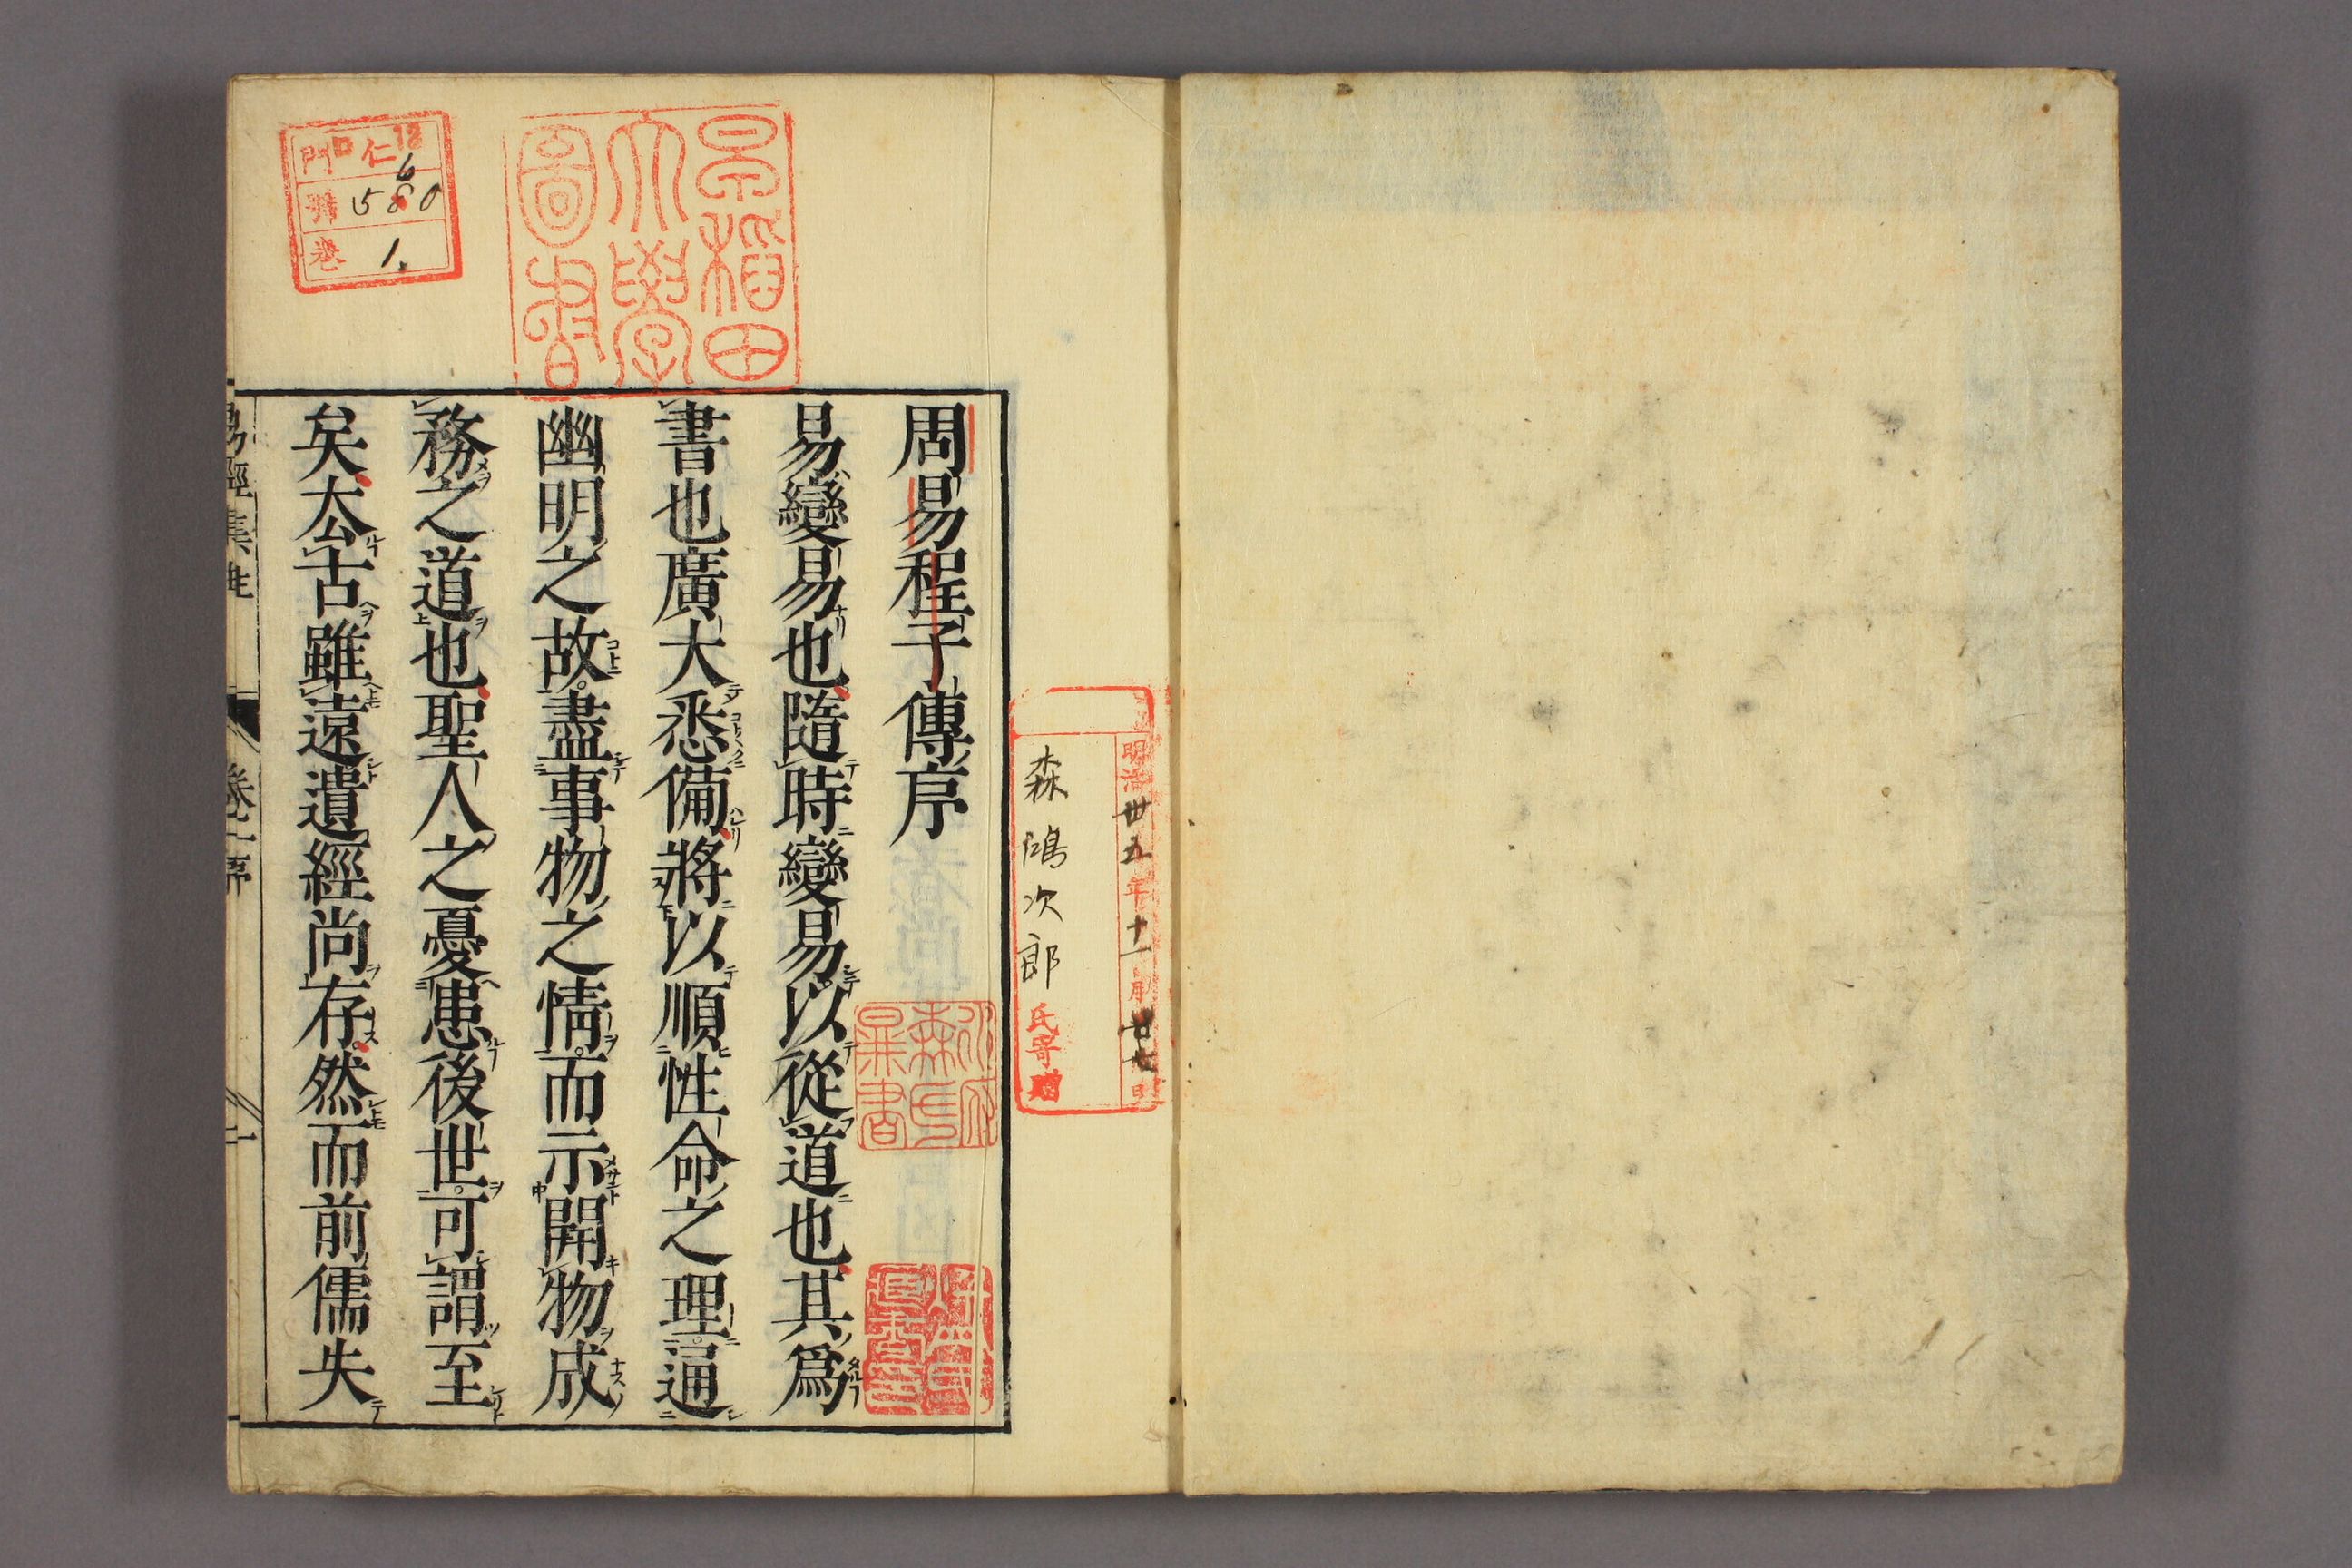 明治卅五年十一月廿七日
森鴻次郎氏寄贈
周易程子傳序
易變易也隨時變易以從道也其爲
書也廣大悉備將以順性命之理通
幽明之故盡事物之情而示開物成
務之道也聖人之憂患後世可謂至
矣去古雖遠遺經尚存然而前儒失
早稻田
大學
圖書
門 ロ 仁 12
號 5680
卷 1
易經集註 卷之一序 一